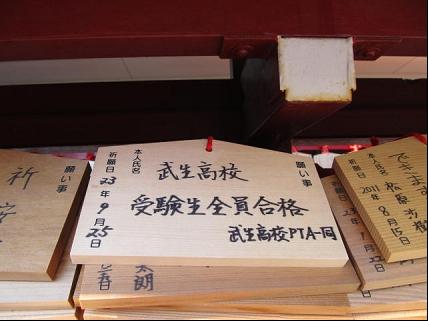 願い事
本人氏名
武生高校
祈願日 23年9月25日
受験生全員合格
武生高校PTA一同
願い事
祈
太朗
できます
2011年8月15日